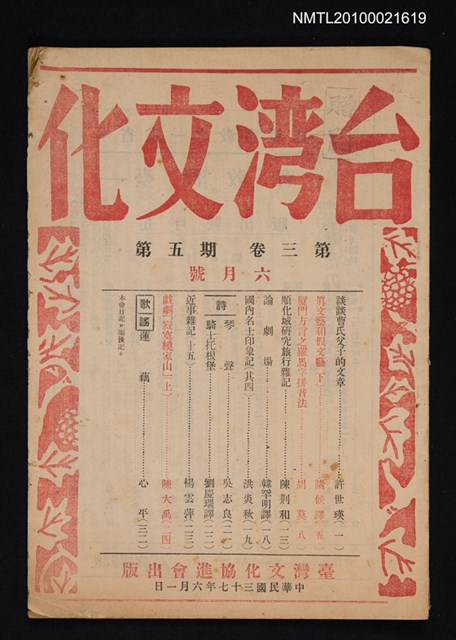 NMTL20100021619
台湾文化
第三卷 第五期
六月號
談談曹氏父子的文章……許世瑛(一)
眞文藝和假文藝(下)……
廈門方言之羅馬字拼音法……
順化城研究旅行雜記……陳荆和(一三)
論劇場……韓罕明譯(一八)
國內名士印象記(其四)……洪炎秋(一九)
詩
琴聲……吳志良(二一)
騎士托根堡……劉慶瑞譯(二二)
近事雜記(十五)……楊雲萍(二三)
戲劇「寂寞繞家山」(上)……陳大禹(二四)
歌謠
蓮藕……心平(三二)
本會日記 編後記
臺灣文化協進會出版
中華民國三十七年六月一日